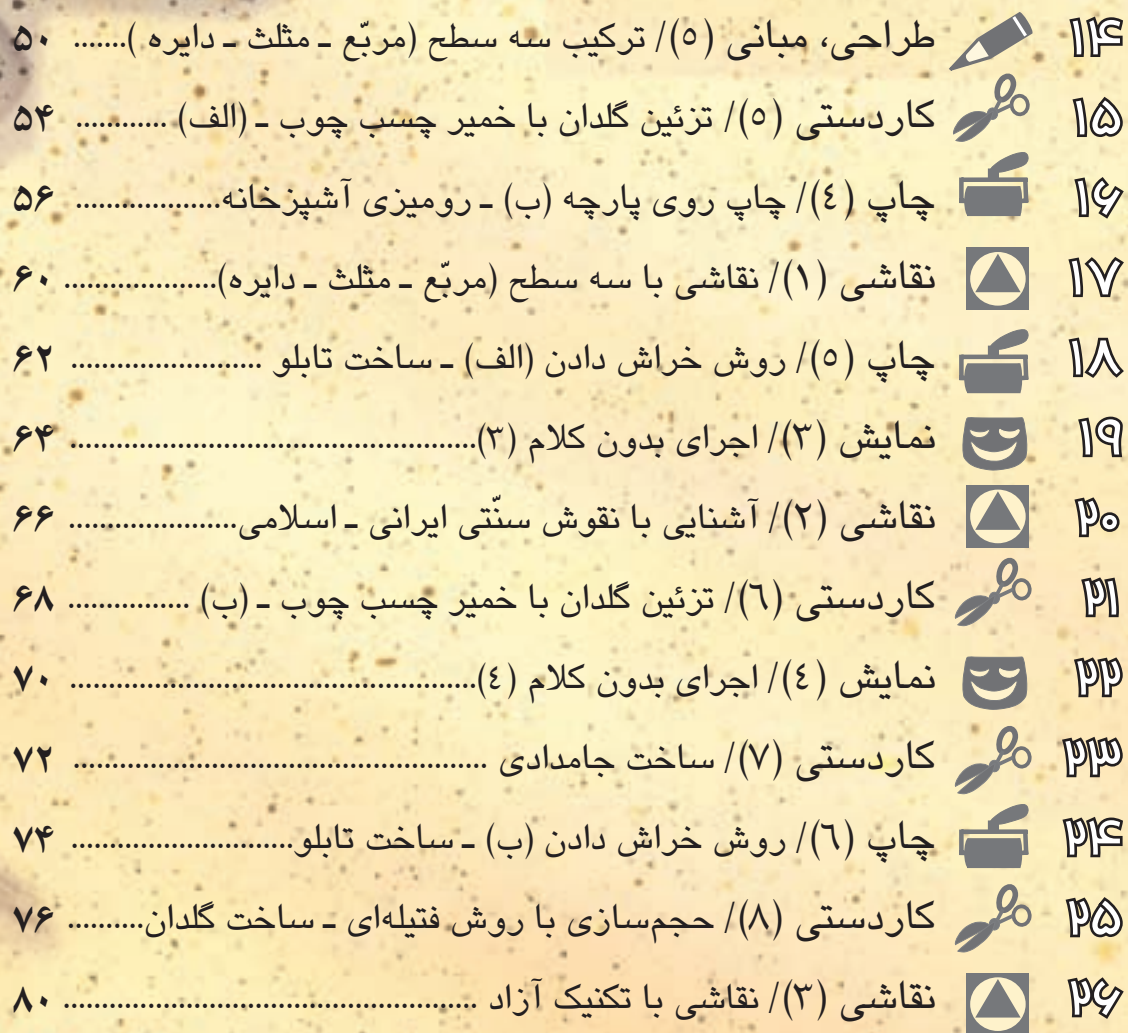 ۱۴ طراحی، مبانی (٥)/ ترکیب سه سطح (مربّع ـ مثلث ـ دایره )....... ۵۰
۱۵ کاردستی (٥)/ تزئین گلدان با خمیر چسب چوب ـ (الف) ............ ۵۴
۱۶ چاپ (٤)/ چاپ روی پارچه (ب) ـ رومیزی آشپزخانه.................. ۵۶
۱۷ نقاشی (١)/ نقاشی با سه سطح (مربّع ـ مثلث ـ دایره)................... ۶۰
۱۸ چاپ (٥)/ روش خراش دادن (الف) ـ ساخت تابلو ........................ ۶۲
۱۹ نمایش (٣)/ اجرای بدون کلام (٣)................................................... ۶۴
۲۰ نقاشی (٢)/ آشنایی با نقوش سنّتی ایرانی ـ اسلامی..................... ۶۶
۲۱ کاردستی (٦)/ تزئین گلدان با خمیر چسب چوب ـ (ب) ............... ۶۸
۲۲ نمایش (٤)/ اجرای بدون کلام (٤)................................................... ۷۰
۲۳ کاردستی (٧)/ ساخت جامدادی .................................................... ۷۲
۲۴ چاپ (٦)/ روش خراش دادن (ب) ـ ساخت تابلو............................ ۷۴
۲۵ کاردستی (٨)/ حجم‌سازی با روش فتیله‌ای ـ ساخت گلدان.......... ۷۶
۲۶ نقاشی (٣)/ نقاشی با تکنیک آزاد .................................................... ۸۰